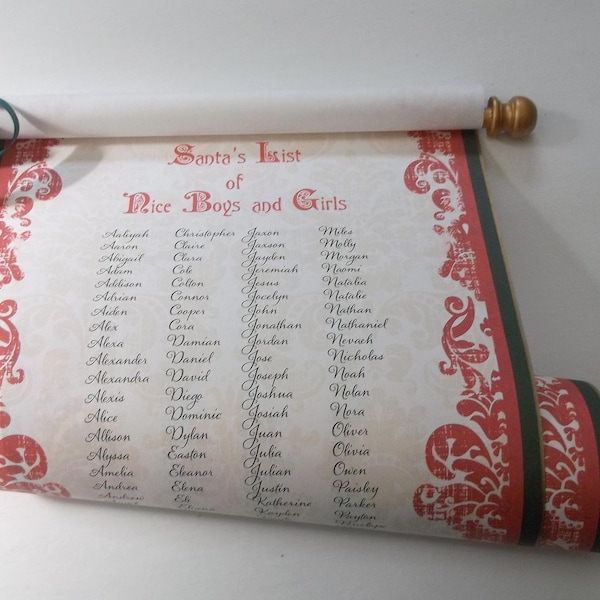 Santa's List
of
Nice Boys and Girls
Aaliyah
Aaron
Abigail
Adam
Addison
Adrian
Aiden
Alex
Alexa
Alexander
Alexandra
Alexis
Alice
Allison
Alyssa
Amelia
Andrea
Andrew
Christopher
Claire
Clara
Cole
Colton
Connor
Cooper
Cora
Damian
Daniel
David
Diego
Dominic
Dylan
Easton
Eleanor
Elena
Eli
Jaxon
Jaxson
Jayden
Jeremiah
Jesus
Jocelyn
John
Jonathan
Jordan
Jose
Joseph
Joshua
Josiah
Juan
Julia
Julian
Justin
Katherine
Kayden
Miles
Molly
Morgan
Naomi
Natalia
Natalie
Nathan
Nathaniel
Nevaeh
Nicholas
Noah
Nolan
Nora
Oliver
Olivia
Owen
Paisley
Parker
Payton